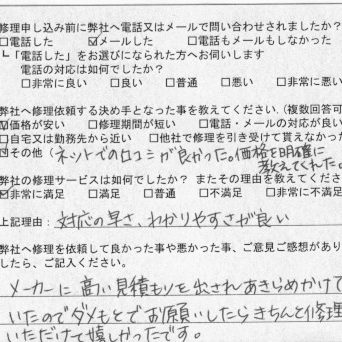 修理申し込み前に弊社へ電話又はメールで問い合わせされましたか?
□電話した ☑メールした □電話もメールもしなかった
┗「電話した」をお選びになられた方へお伺いします
電話の対応は如何でしたか?
□非常に良い □良い □普通 □悪い □非常に悪い
弊社へ修理依頼する決め手となった事を教えてください(複数回答可
☑価格が安い □修理期間が短い □電話・メールの対応が良い
□自宅又は勤務先から近い □他社で修理を引き受けて貰えなかった
☑その他(ネットでの口コミが良かった。価格を明確に
教えてくれた。
弊社の修理サービスは如何でしたか? またその理由を教えてください
☑非常に満足 □満足 □普通 □不満足 □非常に不満足
上記理由:対応の早さ、わかりやすさが良い
弊社へ修理を依頼して良かった事や悪かった事、ご意見ご感想があり
したら、ご記入ください。
メーカーに高い見積もりを出されあきらめかけて
いたのでダメもとでお願いしたらきちんと修理
いただけて嬉しかったです。